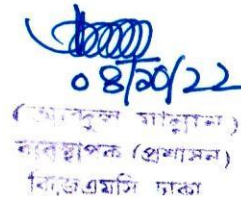 ০৪/১০/২২
(আব্দুল মান্নান)
ব্যবস্থাপক (প্রশাসন)
বিজেএমসি ঢাকা